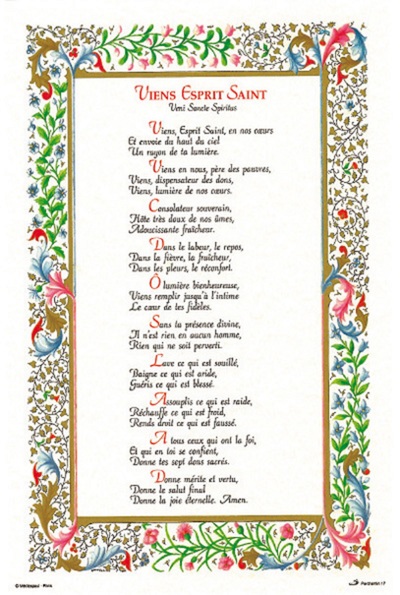 VIENS ESPRIT SAINT
Veni Sancte Spiritus
Viens, Esprit Saint, en nos cœurs
Et envoie du haut du ciel
Un rayon de ta lumière.
Viens en nous, père des pauvres,
Viens, dispensateur des dons,
Viens, lumière de nos cœurs.
Consolateur souverain,
Hôte très doux de nos âmes,
Adoucissante fraîcheur.
Dans le labeur, le repos,
Dans la fièvre, la fraîcheur,
Dans les pleurs, le réconfort.
Ô lumière bienheureuse,
Viens remplir jusqu'à l'intime
Le cœur de tes fidèles.
Sans ta présence divine,
Il n'est rien en aucun homme,
Rien qui ne soit perverti.
Lave ce qui est souillé,
Baigne ce qui est aride,
Guéris ce qui est blessé.
Assouplis ce qui est raide,
Réchauffe ce qui est froid,
Rends droit ce qui est faussé.
A tous ceux qui ont la foi,
Et qui en toi se confient,
Donne tes sept dons sacrés.
Donne mérite et vertu,
Donne le salut final
Donne la joie éternelle. Amen.